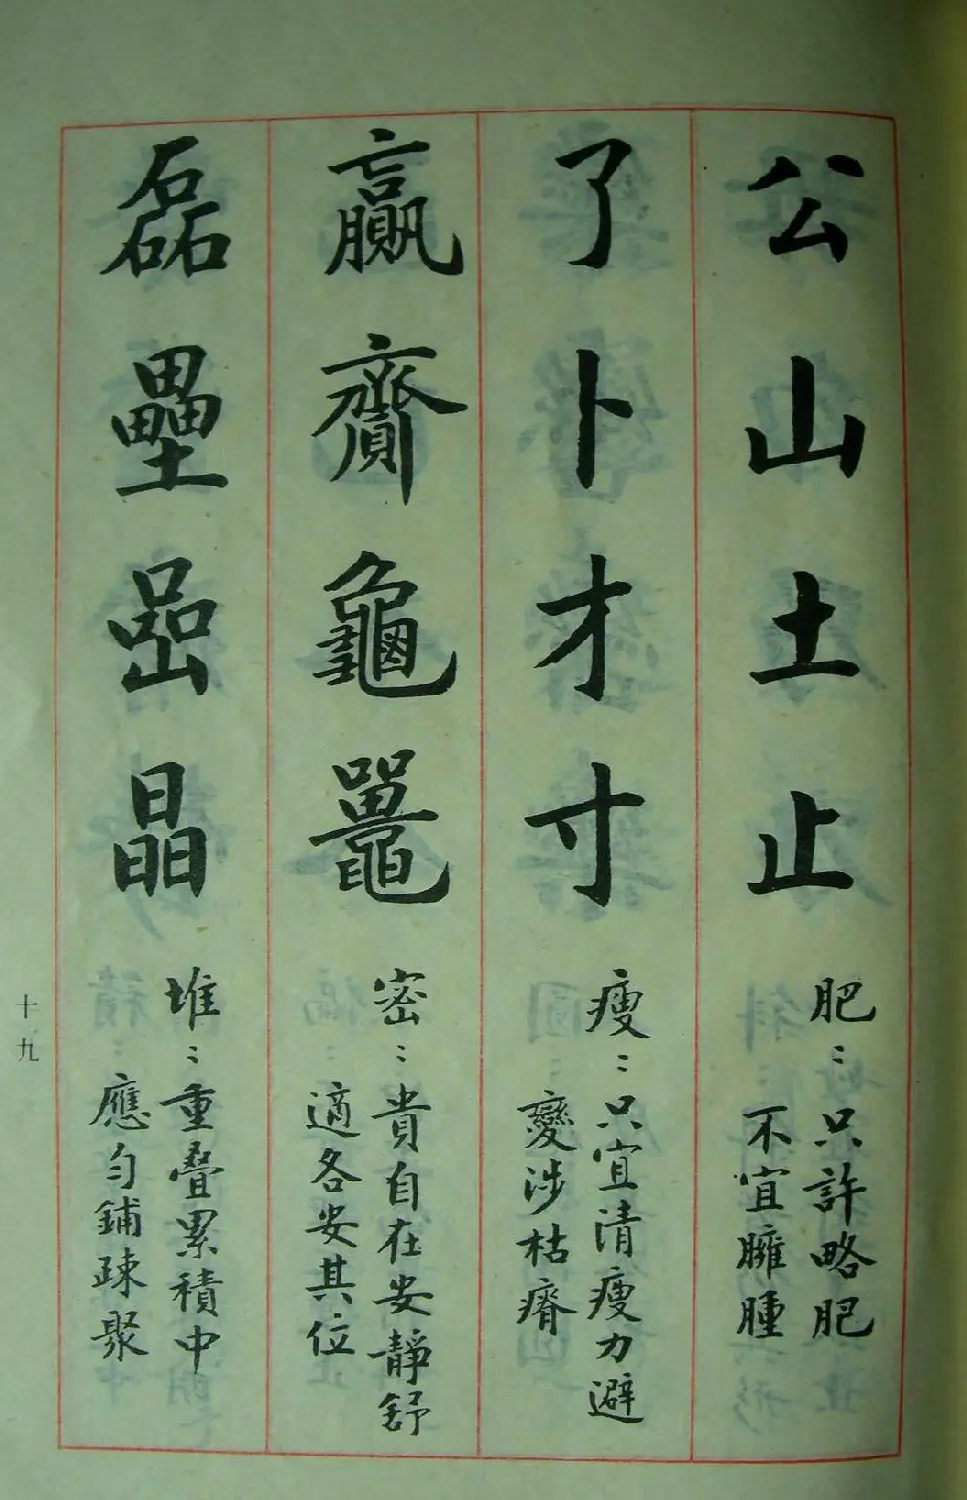 公山土止
肥：只許略肥
不宜臃腫
了卜才寸
瘦：只宜清瘦力避
變涉枯瘠
贏齋龜鼉
密：貴自在安靜舒
適各安其位
磊壘喦晶
堆：重疊累積中
應勻鋪疎聚
十九